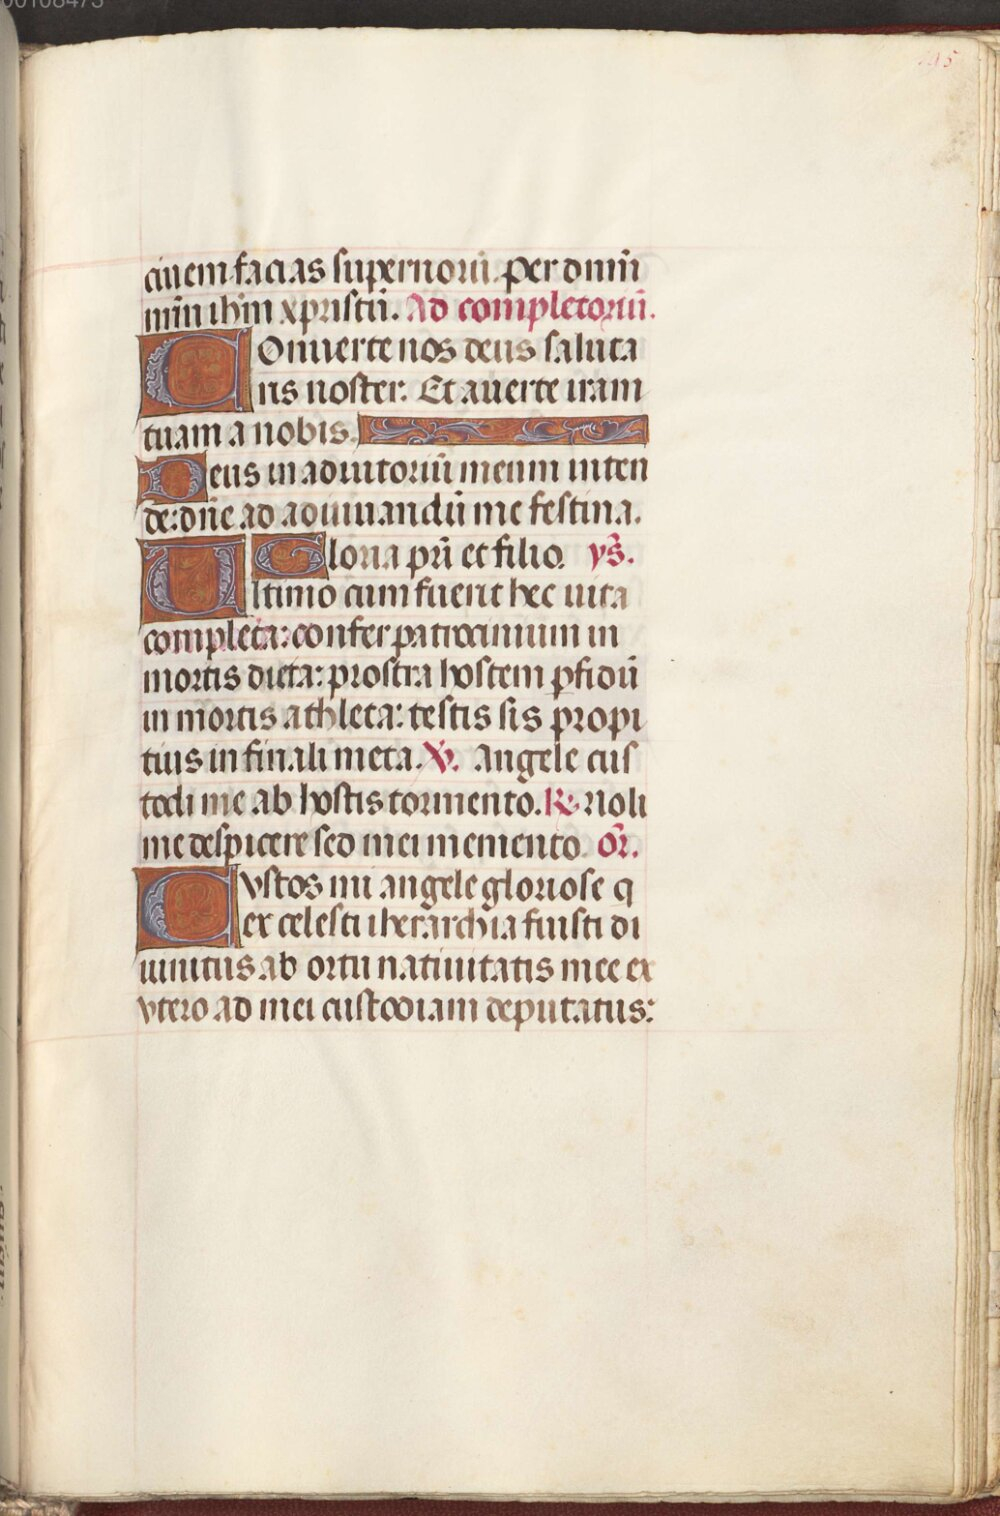 00108473
ciuem facias supernorū. per dnm̄
nr̄m ihm̄ xpristū. Ad completoriū.
COnuerte nos deus saluta
ris noster: Et auerte iram
tuam a nobis.
Deus in adiutoriū meum inten
de: dn̄e ad adiuuandū me festina.
Gloria pr̄i et filio. ys̄.
Ultimo cum fuerit hec uita
completa: confer patrocinium in
mortis dieta: prostra hostem ꝑfidū
in mortis athleta: testis sis propi
tius in finali meta. ℣. Angele cus
todi me ab hostis tormento. ℟. Noli
me despicere sed mei memento. or̄.
Cvstos mi angele gloriose q
ex celesti iherarchia fuisti di
uinitus ab ortu natiuitatis mee ex
vtero ad mei custodiam deputatus: